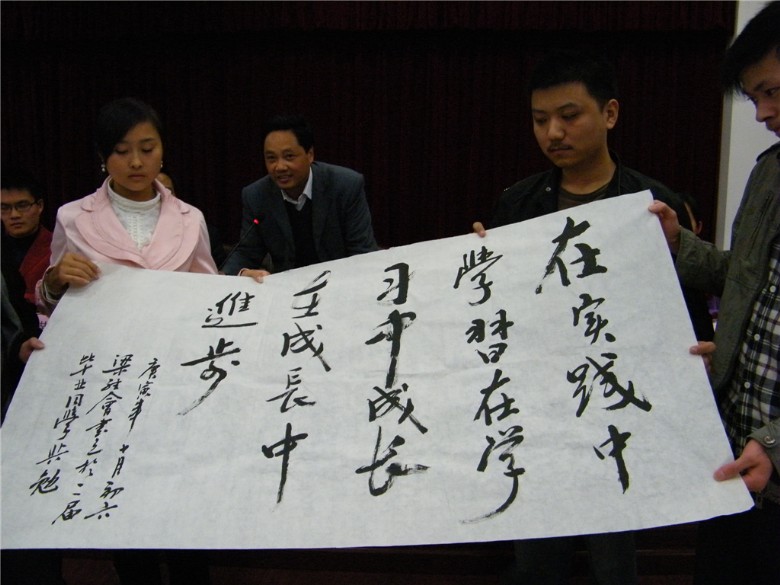 在实践中
學習在学
习中成长
在成長中
進步
庚寅年十月初六
梁會書於二届
毕业同學共勉